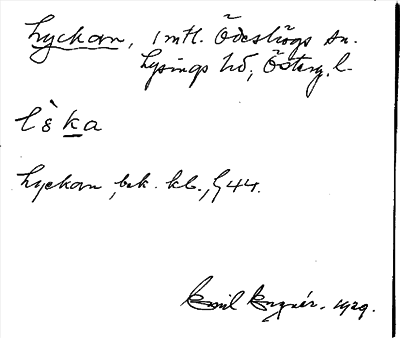 Lyckan, 1 mtl. Ödeshögs sn.
Lysings hd, Österg. l.
lèka
Lyckan, bek. kb., § 44.
Emil 1929.